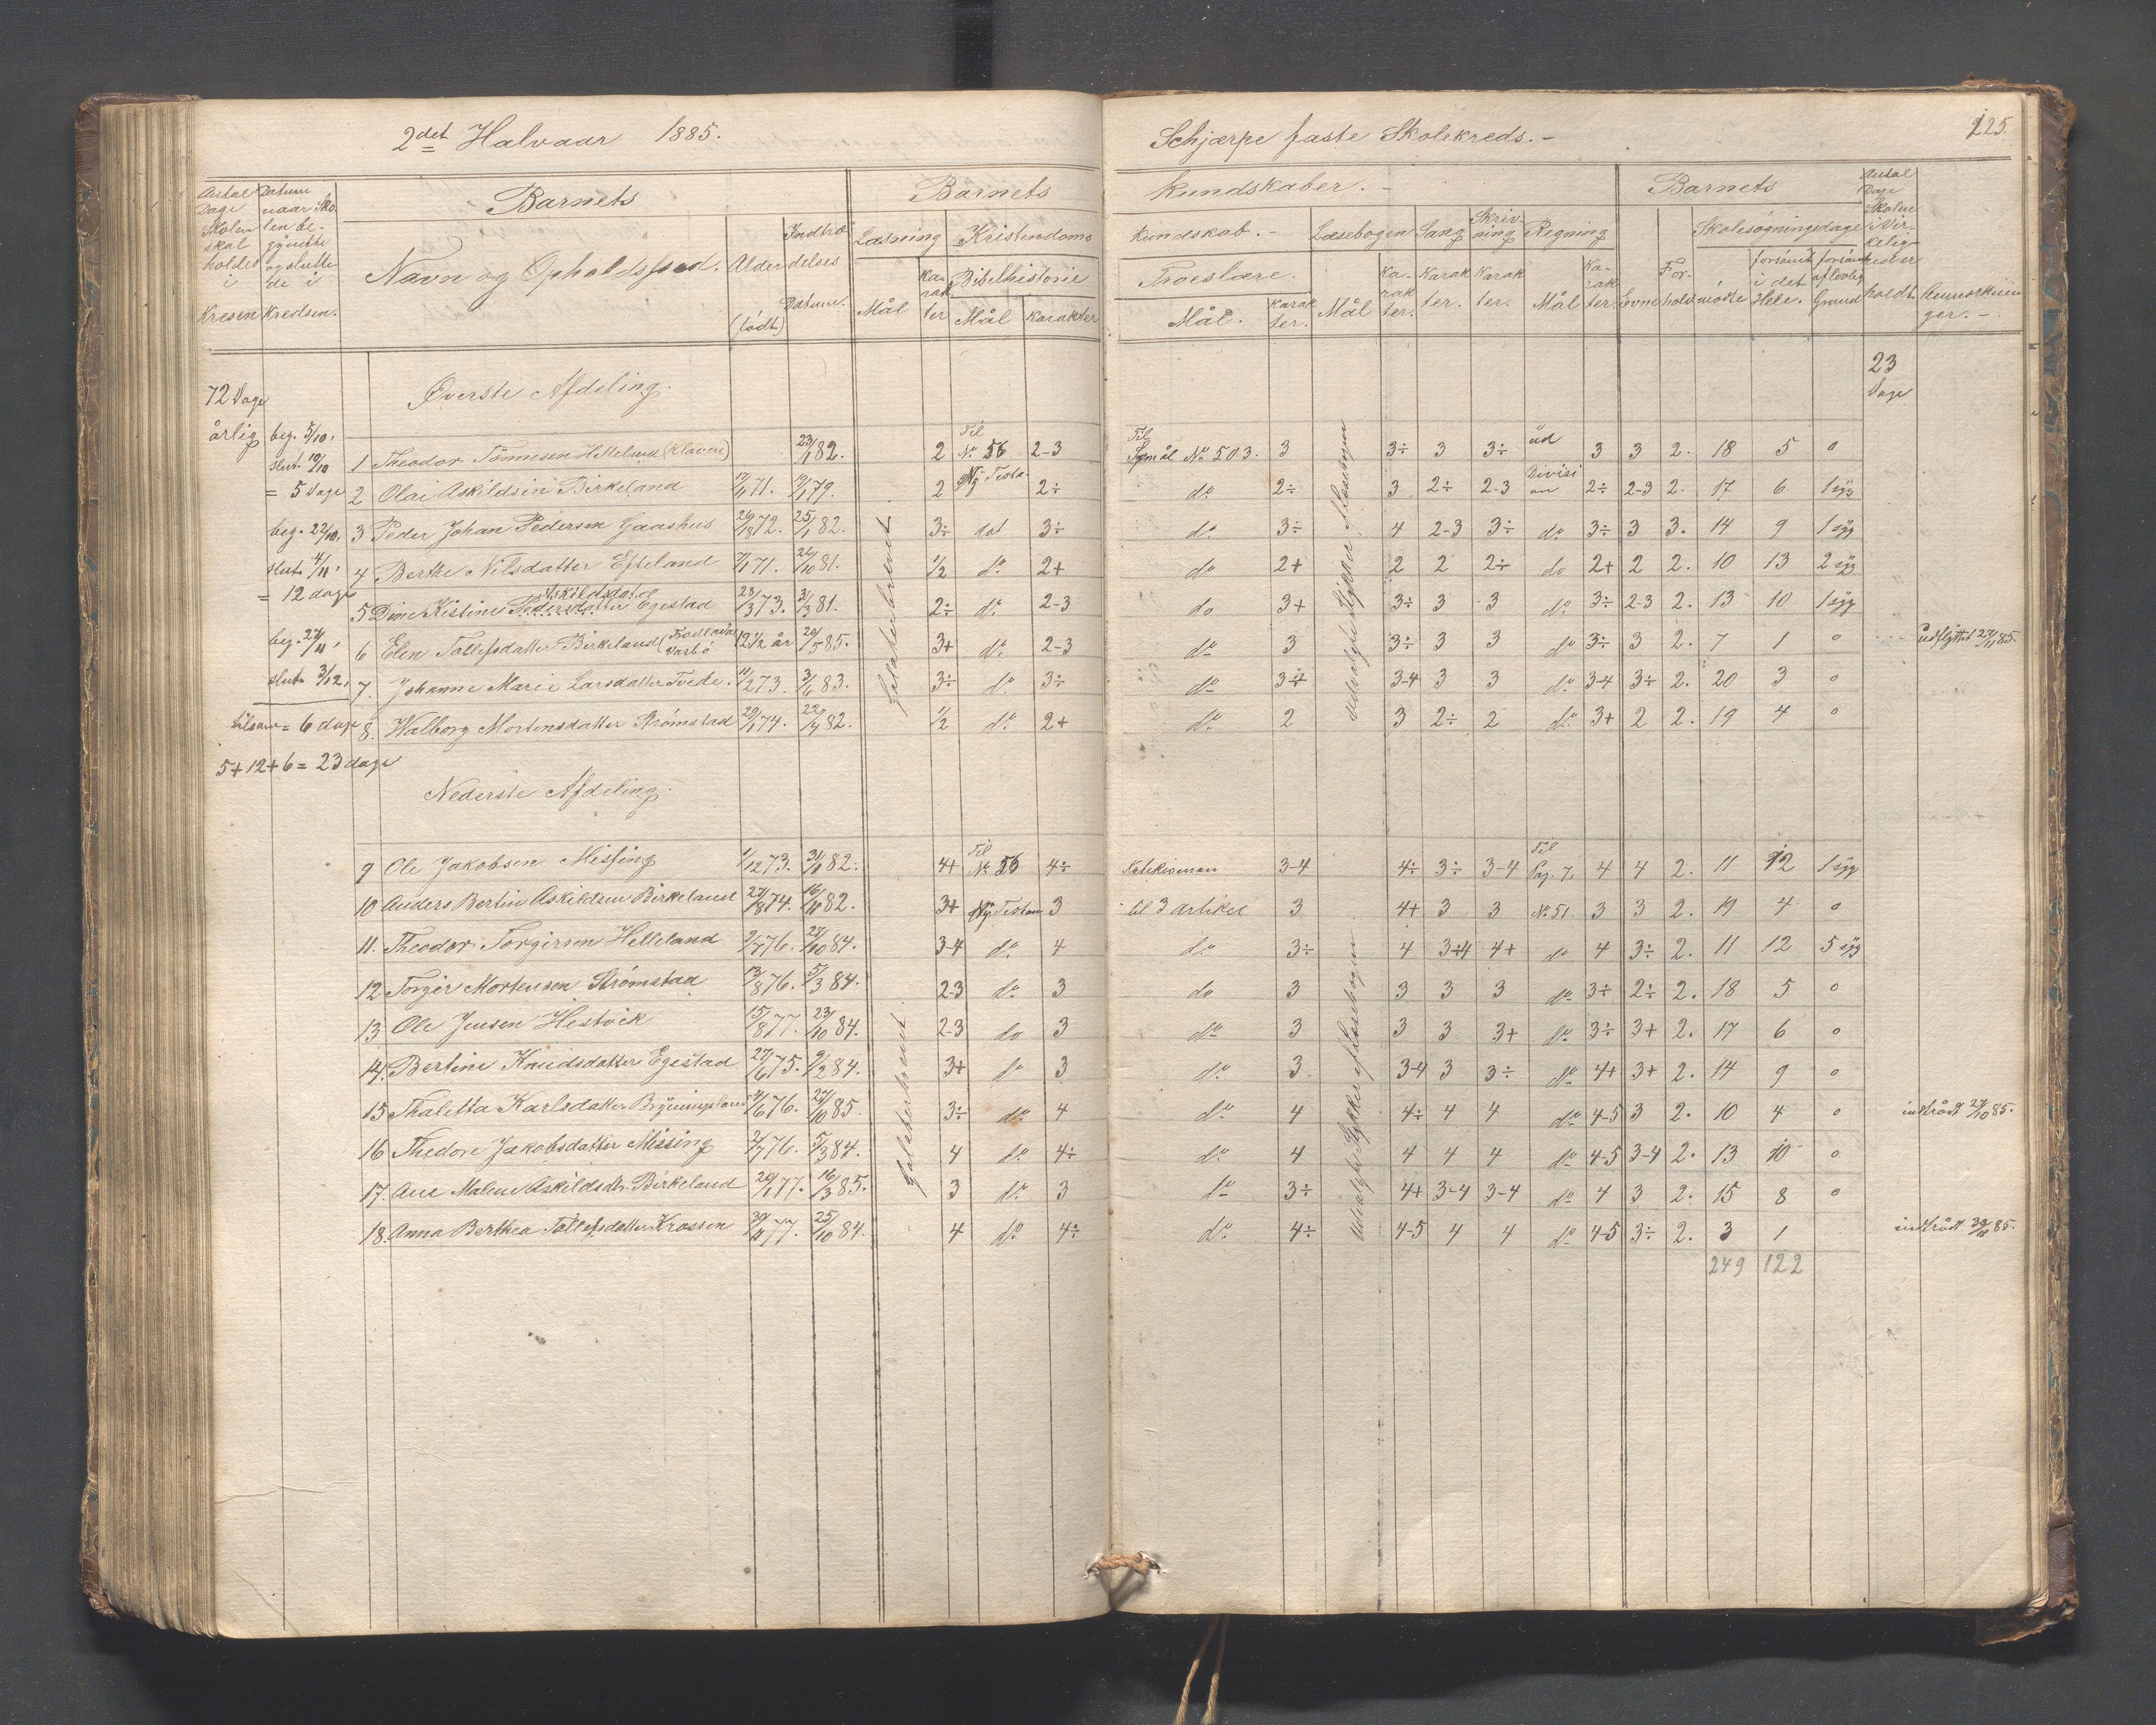 2det Halvaar 1885.
Schjærpe faste Skolekreds.-
225.
Antal Dage Skolen skal holdes i Kresen
Datum naar Skolen begyndte og sluttede i Kredsen.
Barnets
Navn og Opholdssted.
Alder (født)
Indtrædelses Datum.
Barnets Kundskaber.-
Læsning
Mål
Karakter
Kristendoms Kundskab.-
Bibelhistorie
Mål
Karakter
Troeslære.
Mål.
Karakter.
Læsebogen
Mål
Karakter.
Sang
Karakter.
Skrivning
Karakter.
Regning
Mål
Karakter.
Barnets
Evne
Forhold
Skolesøgningsdage
mødte
forsømt i det Hele.
forsømt af lovlig Grund
Antal Dage Skolen i Virkeligheden holdt.
Anmærkninger.-
72 Dage årlig
beg. 5/10.
slut. 10/10
= 5 Dage
beg. 22/10.
slut. 4/11.
= 12 dage
beg. 27/11.
slut. 3/12.
tilsam = 6 dage
5+12+6= 23 dage
23 Dage
Øverste Afdeling.
1 Theodor Tønnesen Helleland (Klaven) 23/1 82. 2 Til No 56 2-3 Til Spmål No 503. 3 3÷ 3 3÷ ud 3 3 2. 18 5 0
2 Olai Askildsen Birkeland 17/1 71. 79. 2 Ny Testa. 2÷ do 2÷ 3 2÷ 2-3 Division 2÷ 2-3 2. 17 6 1 syg
3 Peder Johan Pedersen Gaashus 26/8 72. 25/1 82. 3÷ dot 3÷ do 3÷ 4 2-3 3÷ do 3÷ 3 3. 14 9 1 syg
4 Berthe Nilsdatter Efteland 71. 26/10 81. 1/2 do 2+ do 2+ 2 2 2÷ do 2+ 2 2. 10 13 2 syg
5 Dine Kistine Pedersdatter Askildsdatd Egestad 23/3 73. 31/3 81. 2÷ do 2-3 do 3+ 3÷ 3 3 do 3÷ 2-3 2. 13 10 1 syg
6 Elen Tollefsdatter Birkeland 12 1/2 år 20/5 85. 3+ do 2-3 do 3 3÷ 3 3 do 3÷ 3 2. 7 1 0 udflyttet 27/11 85.
7. Johanne Marie Larsdatter Tvede. 11/2 73. 3/6 83. 3÷ do 3÷ do 3÷ 3-4 3 3 do 3-4 3÷ 2. 20 3 0
8. Walborg Mortensdatter Strømstad 29/1 74. 22/4 82. 1/2 do 2+ do 2 3 2÷ 2 do 3+ 2 2. 19 4 0
Galaterbrevet
Udvalgte Stykker Læsebogen
Nederste Afdeling.
9 Ole Jakobsen Missing 1/12 73. 31/10 82. 4+ Til No 56 4÷ Katekismen 3-4 4÷ 3÷ 3-4 Til Pag. 7. 4 4 2. 11 12 1 syg
10 Anders Bertin Askildsen Birkeland 27/8 74. 16/10 82. 3+ Ny Testam 3 til 3 Artikel 3 4+ 3 3 No 51. 3 3 2. 19 4 0
11. Theodor Torgirsen Helleland 2/7 76. 27/10 84. 3-4 do 4 do 3÷ 4 3÷4 4+ do 4 3÷ 2. 11 12 5 syg
12 Torger Mortensen Strømstad 13/8 76. 5/3 84. 2-3 do 3 do 3 3 3 3 do 3÷ 2÷ 2. 18 5 0
13. Ole Jensen Hestvck 15/8 77. 23/10 84. 2-3 do 3 do 3 3 3 3+ do 3÷ 3+ 2. 17 6 0
14. Bertine Knudsdatter Egestad 27/6 75. 9/2 84. 3+ do 3 do 3 3-4 3 3÷ do 4+ 3+ 2. 14 9 0
15 Thaletta Karlsdatter Bryningsland 4/6 76. 27/10 85. 3÷ do 4 do 4 4÷ 4 4 do 4-5 3 2. 10 4 0 indtrådt 27/10 85.
16 Thedore Jakobsdatter Missing 2/7 76. 5/3 84. 4 do 4÷ do 4 4 4 4 do 4-5 3-4 2. 13 10 0
17. Ane Malene Askildsdtr. Birkeland 20/1 77. 16/3 85. 3 do 3 do 3÷ 4+ 3-4 3-4 do 4 3 2. 15 8 0
18. Anna Berthea Tollefsdatter Krossen 77. 25/10 84. 4 do 4÷ do 4÷ 4-5 4 4 do 4-5 3÷ 2. 3 1 indtrådt 30/11 85.
Galaterbrevet
Udvalgte Stykker af Læsebogen
249 122